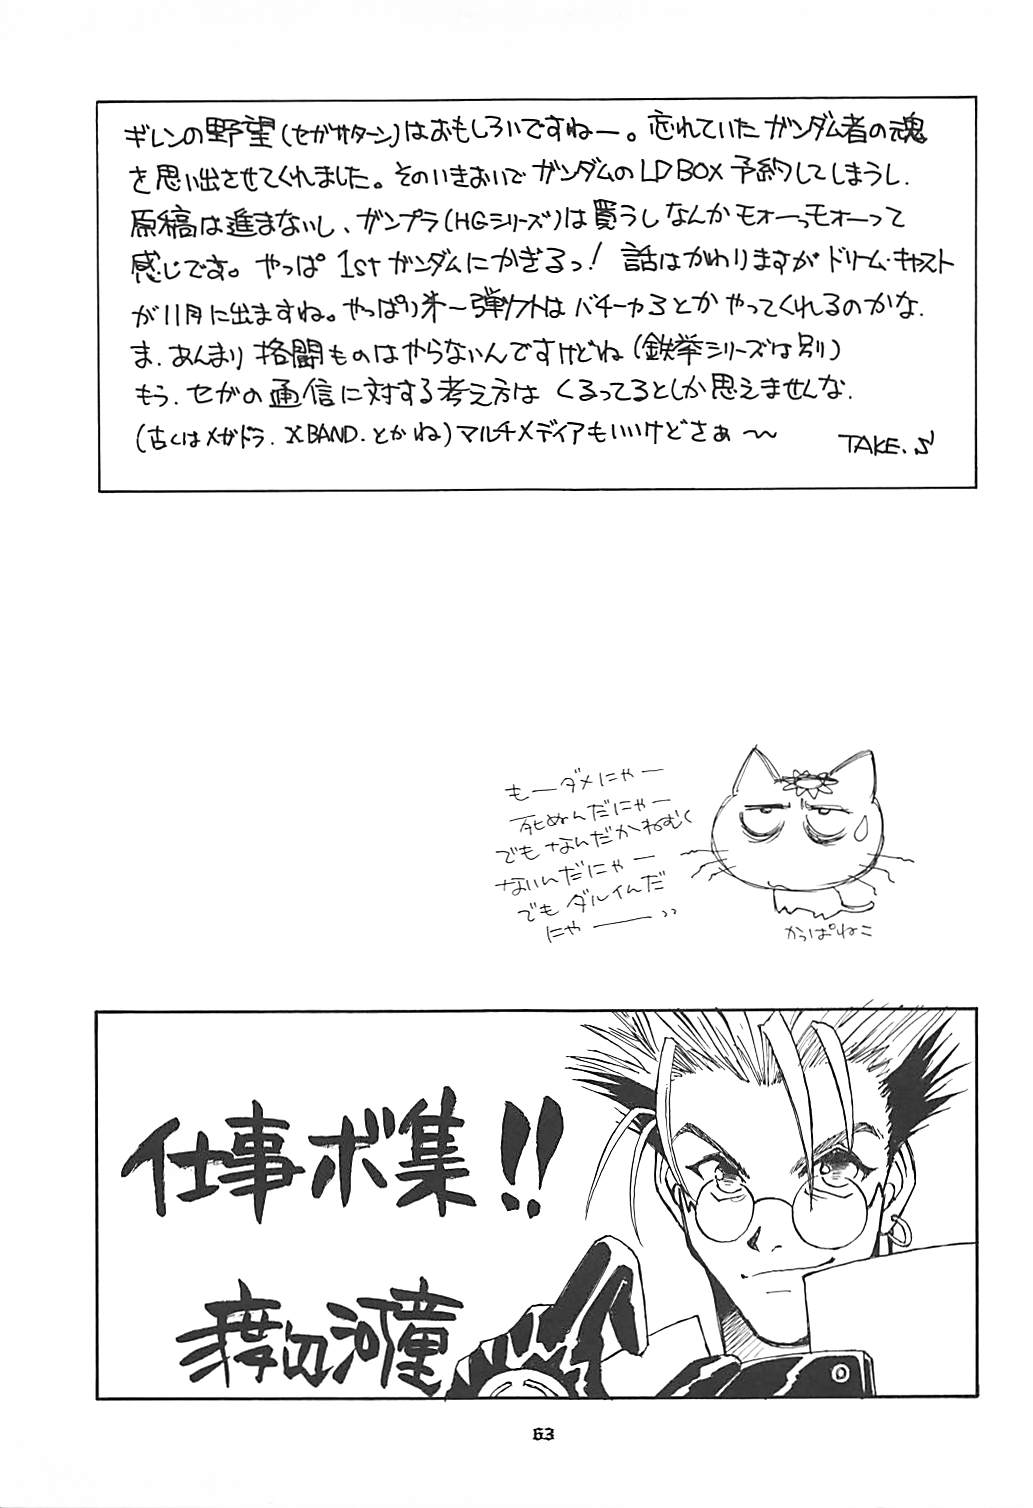 ギレンの野望(セガサターン)はおもしろいですねー。忘れていたガンダム者の魂
を思い出させてくれました。そのいきおいでガンダムのLD BOX 予約してしまうし.
原稿は進まないし、ガンプラ(HGシリーズ)は買うしなんかモォーっモォーって
感じです。やっぱ 1stガンダムにかぎるっ! 話はかわりますがドリーム・キャスト
が11月に出ますね。やっぱりオ〜弾ソフトはバチーカ3とかやってくれるのかな.
ま.あんまり格闘ものはやらないんですけどね(鉄拳シリーズは別)
もう.セガの通信に対する考え方はくるってるとしか思えませんな.
(古くはメガドラ. XBAND.とかね)マルチメディアもいいけどさぁ〜
TAKE.S
もーダメにゃー
死ぬんだにゃー
でもなんだかねむく
ないんだにゃー
でもダルイんだ
にゃー
かっぱねこ
仕事ボ集!!
渡辺河童
63